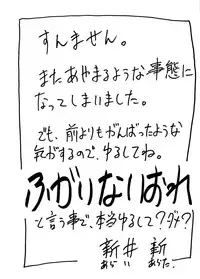 すんません。
またあやまるような事態に
なってしまいました。
でも、前よりもがんばったような
気がするので、ゆるしてね。
ふがいないおれ
と言う事で、本当ゆるして?ダメ?
新井 新
あらい あらた